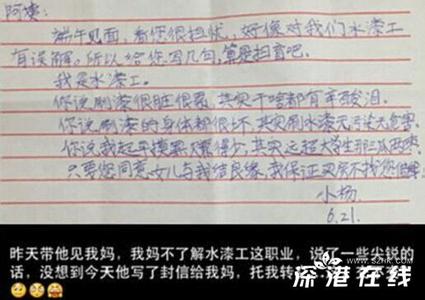 阿姨:
端午见面,看您很担忧,好像对我们水漆工
有误解。所以给您写几句,算是扫盲吧。
我是水漆工。
你说刷漆很脏很累,其实干啥都有辛酸泪。
你说刷漆的身体都很坏,其实刷水漆无污染无危害。
你说我起早摸黑又赚得少,其实远超大学生那三瓜两枣。
只要您同意女儿与我结良缘,我保证买房不找您借
小杨
6.21.
昨天带他见我妈,我妈不了解水漆工这职业,说了一些尖锐的
话,没想到今天他写了封信给我妈,托我转
深港在线